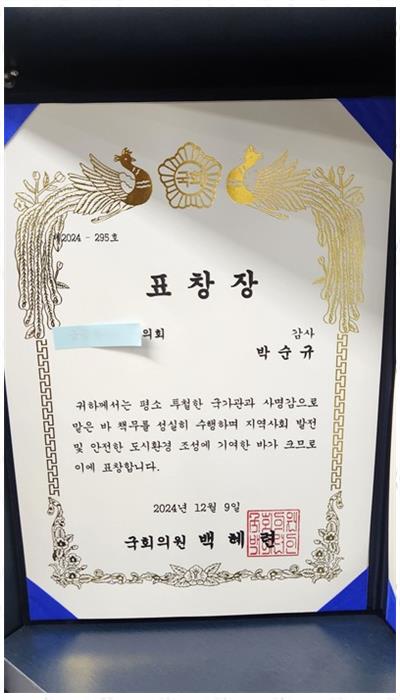 국회
제2024 - 295호
표창장
의회
감사
박순규
귀하께서는 평소 투철한 국가관과 사명감으로
맡은 바 책무를 성실히 수행하며 지역사회 발전
및 안전한 도시환경 조성에 기여한 바가 크므로
이에 표창합니다.
2024년 12월 9일
국회의원 백혜련